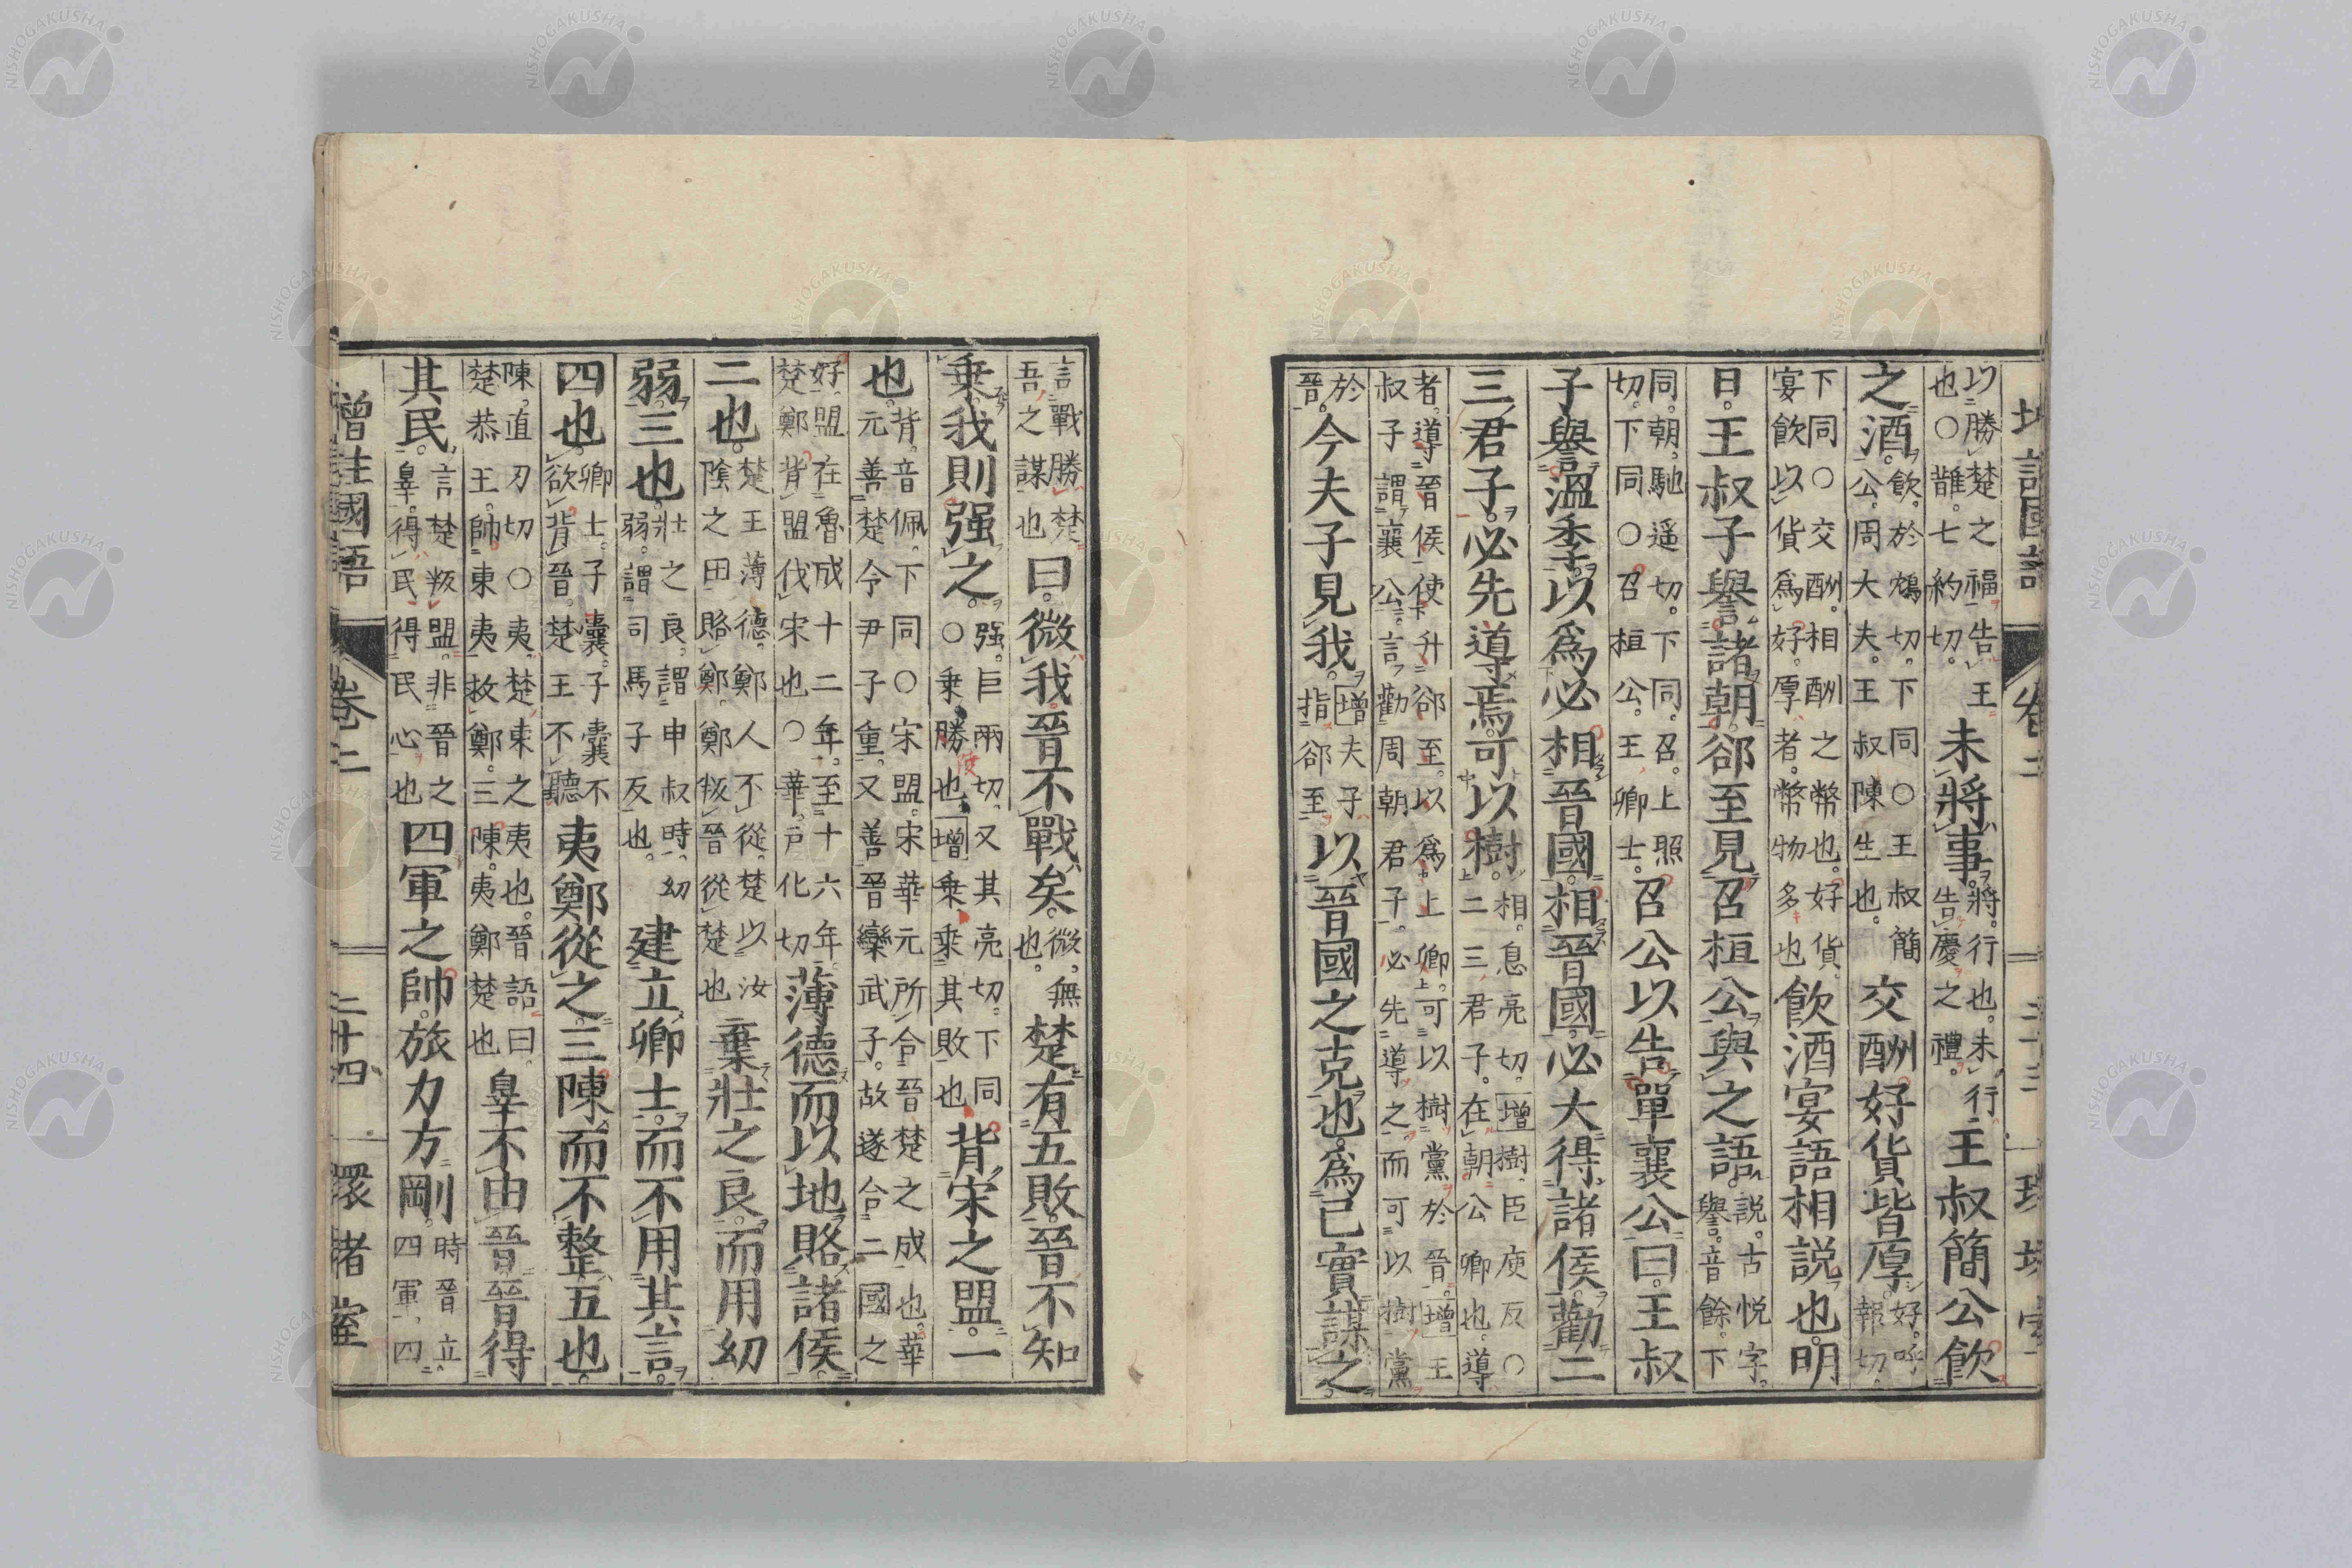 以勝楚之福告王也○鵲七約切未將事將行也未行告慶之禮王叔簡公飲
之酒飲於鴆切下同○王叔簡公周大夫王叔陳生也交酬好貨皆厚好呼報切
下同○交酬相酬之幣也好貨宴飲以貨爲好厚者幣物多也飲酒宴語相說也明
日王叔子譽諸朝郤至見召桓公與之語說古悅字譽音餘下
同朝馳遥切下同召上照切下同○召桓公王卿士召公以告單襄公曰王叔
子譽溫季以爲必相晉國相晉國必大得諸侯勸二
三君子必先導焉可以樹相息亮切增樹臣庾反○二三君子在朝公卿也導
者導晉侯使升郤至以爲上卿可以樹黨於晉增王叔子謂襄公言勸周朝君子必先導之而可以樹黨
於晉今夫子見我增夫子指郤至以晉國之克也爲己實謀之
卷二
言戰勝楚吾之謀也曰微我晉不戰矣微無也楚有五敗晉不知
乗我則强之强巨兩切又其亮切下同○乗勝也增乗乗其敗也背宋之盟一
也背音佩下同○宋盟宋華元所合晉楚之成也華元善楚令尹子重又善晉欒武子故遂合二國之
好盟在魯成十二年至十六年楚鄭背盟伐宋也○華戸化切薄德而以地賂諸侯
二也楚王薄德鄭人不從楚以汝陰之田賂鄭鄭叛晉從楚也棄壯之良而用幼
弱三也壯之良謂申叔時幼弱謂司馬子反也建立卿士而不用其言
四也卿士子囊子囊不欲背晉楚王不聽夷鄭從之三陳而不整五也
陳直刃切○夷楚東之夷也晉語曰楚恭王帥東夷救鄭三陳夷鄭楚也辠不由晉晉得
其民言楚叛盟非晉之辠得民得民心也四軍之帥旅力方剛時晉立四軍四
增註國語
卷二
二十四
環堵室